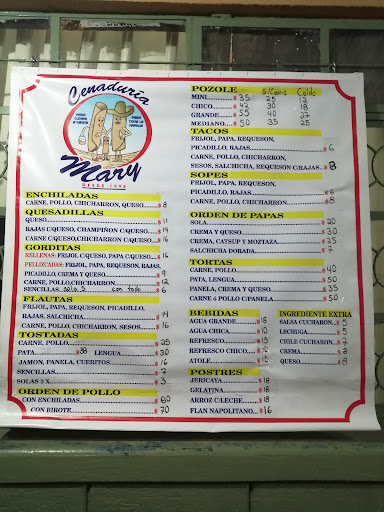 Cenaduría
Mary
DESDE 1990
ENCHILADAS
CARNE, POLLO, CHICHARRON, QUESO.....$ 8
QUESADILLAS
QUESO.....$ 11
RAJAS C/QUESO, CHAMPIÑON C/QUESO.....$ 14
CARNE C/QUESO,CHICHARRON C/QUESO.....$ 16
GORDITAS
RELLENAS: FRIJOL C/QUESO, PAPA C/QUESO.....$ 16
PELLIZCADAS: FRIJOL, PAPA, REQUESON, RAJAS,
PICADILLO, CREMA y QUESO.....$ 9
CARNE, POLLO,CHICHARRON.....$ 12
SENCILLAS. sola 5 con todo $ 6
FLAUTAS
FRIJOL, PAPA, REQUESON, PICADILLO,
RAJAS, SALCHICHA.....$ 14
CARNE, POLLO, CHICHARRON, SESOS.....$ 16
TOSTADAS
CARNE, POLLO.....$ 25
PATA.....$ 38 LENGUA.....$ 30
JAMON, PANELA, CUERITOS.....$ 16
SENCILLAS.....$ 7
SOLAS 3 X.....$ 3
ORDEN DE POLLO
CON ENCHILADAS.....$ 80
CON BIROTE.....$ 70
POZOLE S/Carne Caldo
MINI.....$ 35 25 12
CHICO.....$ 42 30 18
GRANDE.....$ 55 40 27
MEDIANO.....$ 50 35 25
TACOS
FRIJOL, PAPA, REQUESON,
PICADILLO, RAJAS.....$ 6
CARNE, POLLO, CHICHARRON,
SESOS, SALCHICHA, REQUESON C/RAJAS..$ 8
SOPES
FRIJOL, PAPA, REQUESON,
PICADILLO, RAJAS.....$ 6
CARNE, POLLO, CHICHARRON.....$ 8
ORDEN DE PAPAS
SOLA.....$ 20
CREMA Y QUESO.....$ 30
CREMA, CATSUP Y MOZTAZA.....$ 25
SALCHICHA DORADA.....$ 7
TORTAS
CARNE, POLLO.....$ 40
PATA, LENGUA.....$ 50
PANELA, CREMA Y QUESO.....$ 35
CARNE ó POLLO C/PANELA.....$ 50
BEBIDAS
AGUA GRANDE.....$ 18
AGUA CHICA.....$ 10
REFRESCO.....$ 15
REFRESCO CHICO.....$
ATOLE.....$ 15
INGREDIENTE EXTRA
SALSA CUCHARON...$ 5
LECHUGA.....$ 5
CHILE CUCHARON....$
CREMA.....$
QUESO.....$ 8
POSTRES
JERICAYA.....$ 18
GELATINA.....$ 18
ARROZ C/LECHE.....$ 18
FLAN NAPOLITANO...$ 16